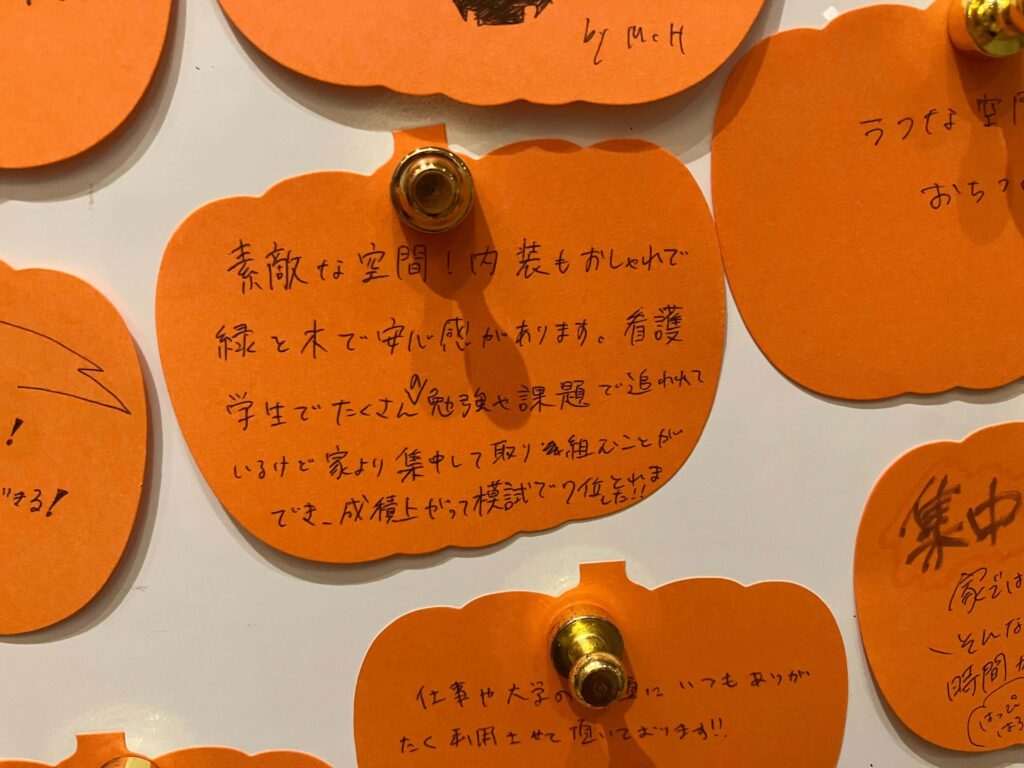 by McH
素敵な空間！内装もおしゃれで
緑と木で安心感があります。看護
学生でたくさんの勉強や課題で追われて
いるけど家より集中して取り組むことが
でき、成積上がって模試で7位とれま
した!!
ラフな空間
おちつ
!
できる!
集中
家では
そんな
時間
はっぴ
はろ
仕事や大学の 題にいつもありが
たく利用させて頂いております!!